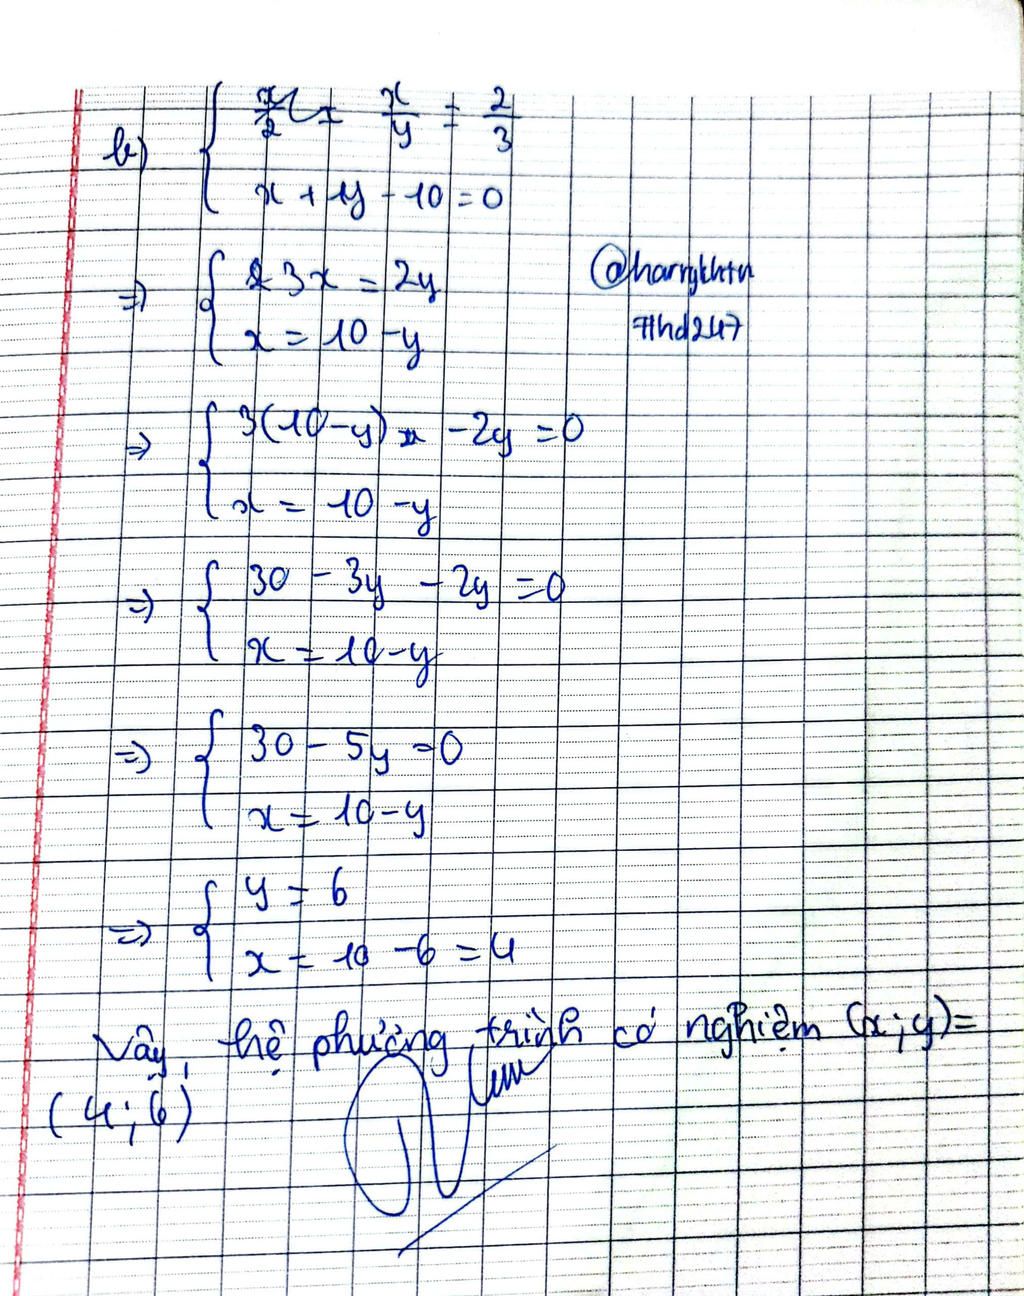 b) { x/y = 2/3
x + y - 10 = 0
=> { 3x = 2y
x = 10 - y
@harrykhtn
#hd247
=> { 3(10-y) - 2y = 0
x = 10 - y
=> { 30 - 3y - 2y = 0
x = 10 - y
=> { 30 - 5y = 0
x = 10 - y
=> { y = 6
x = 10 - 6 = 4
Vậy, hệ phương trình có nghiệm (x; y) =
(4; 6)